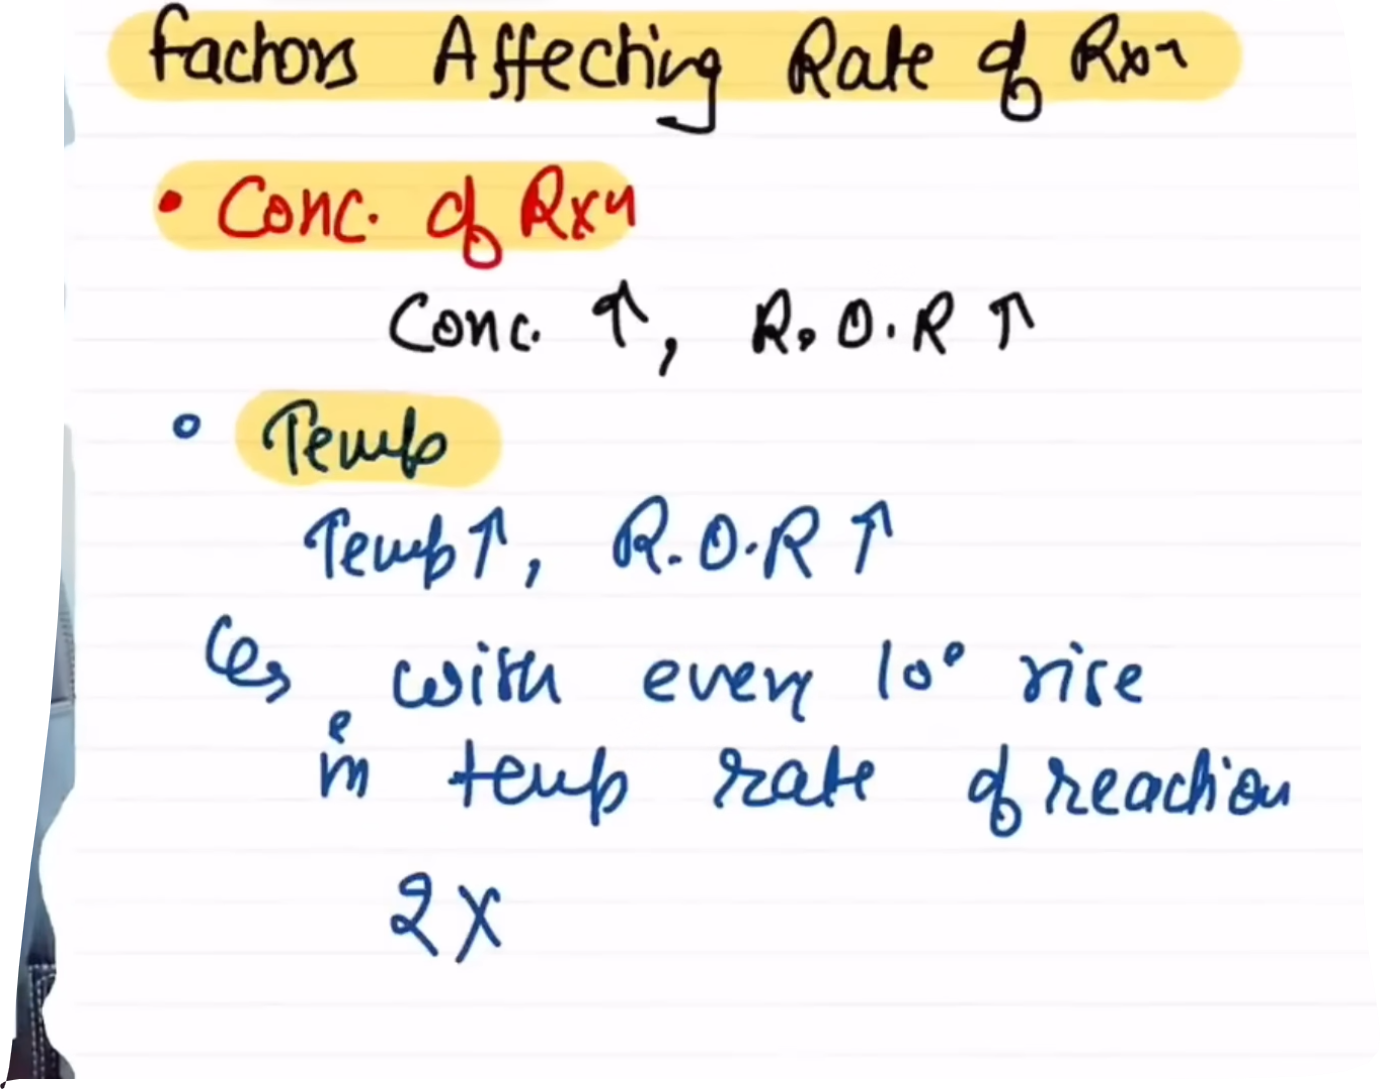 Factors Affecting Rate of Rxn
• Conc. of Rxn
Conc. ↑, R.O.R ↑
◦ Temp
Temp↑, R.O.R ↑
↳ with every 10° rise
in temp rate of reaction
2X